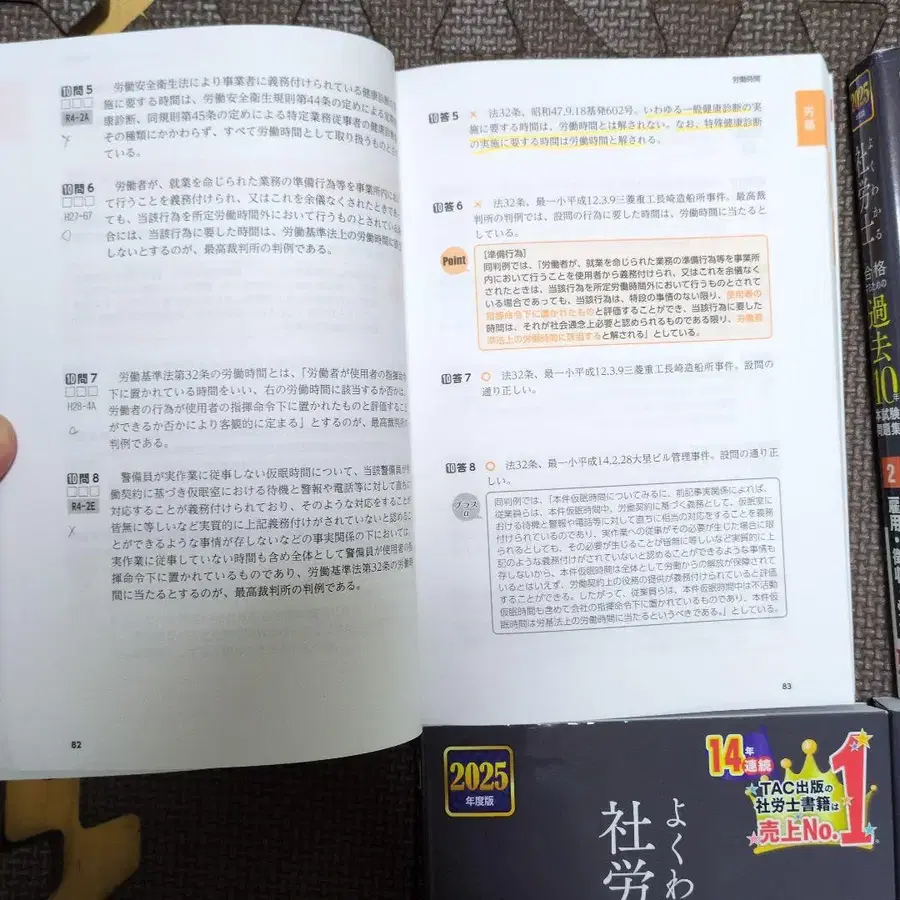 10問5 労働安全衛生法により事業者に義務付けられている健康診断の実
施に要する時間は、労働安全衛生規則第44条の定めによる定期健
R4-2A 康診断、同規則第45条の定めによる特定業務従事者の健康診断等
その種類にかかわらず、すべて労働時間として取り扱うものとされ
ている。
10問6 労働者が、就業を命じられた業務の準備行為等を事業所内におい
て行うことを義務付けられ、又はこれを余儀なくされたときであっ
H27-67 ても、当該行為を所定労働時間外において行うものとされている場
合には、当該行為に要した時間は、労働基準法上の労働時間に該当
しないとするのが、最高裁判所の判例である。
10問7 労働基準法第32条の労働時間とは、「労働者が使用者の指揮命令
下に置かれている時間をいい、右の労働時間に該当するか否かは、
H28-4A 労働者の行為が使用者の指揮命令下に置かれたものと評価すること
ができるか否かにより客観的に定まる」とするのが、最高裁判所の
判例である。
10問8 警備員が実作業に従事しない仮眠時間について、当該警備員が労
働契約に基づき仮眠室における待機と警報や電話等に対して直ちに
R4-2E 対応することが義務付けられており、そのような対応をすることが
皆無に等しいなど実質的に上記義務付けがされていないと認めるこ
とができるような事情が存しないなどの事実関係の下においては、
実作業に従事していない時間も含め全体として警備員が使用者の指
揮命令下に置かれているものであり、労働基準法第32条の労働時
間に当たるとするのが、最高裁判所の判例である。
82
労働時間
労基
10答5 × 法32条、昭和47.9.18基発602号。いわゆる一般健康診断の実
施に要する時間は、労働時間とは解されない。なお、特殊健康診断
の実施に要する時間は労働時間と解される。
10答6 × 法32条、最一小平成12.3.9三菱重工長崎造船所事件。最高裁
判所の判例では、設問の行為に要した時間は、労働時間に当たると
している。
Point [準備行為]
同判例では、「労働者が、就業を命じられた業務の準備行為等を事業所
内において行うことを使用者から義務付けられ、又はこれを余儀なく
されたときは、当該行為を所定労働時間外において行うものとされて
いる場合であっても、当該行為は、特段の事情のない限り、使用者の
指揮命令下に置かれたものと評価することができ、当該行為に要した
時間は、それが社会通念上必要と認められるものである限り、労働基
準法上の労働時間に該当すると解される」としている。
10答7 ○ 法32条、最一小平成12.3.9三菱重工長崎造船所事件。設問の
通り正しい。
10答8 ○ 法32条、最一小平成14.2.28大星ビル管理事件。設問の通り正
しい。
プラスα 同判例では、「本件仮眠時間についてみるに、前記事実関係によれば、
従業員らは、本件仮眠時間中、労働契約に基づく義務として、仮眠室に
おける待機と警報や電話等に対して直ちに相当の対応をすることを義務
付けられているのであり、実作業への従事がその必要が生じた場合に限
られるとしても、その必要が生じることが皆無に等しいなど実質的に上
記のような義務付けがされていないと認めることができるような事情も
存しないから、本件仮眠時間は全体として労働からの解放が保障されて
いるとはいえず、労働契約上の役務の提供が義務付けられていると評価
することができる。したがって、従業員らは、本件仮眠時間中は不活動
仮眠時間も含めて会社の指揮命令下に置かれているものであり、本件仮
眠時間は労基法上の労働時間に当たるというべきである。」としている。
83
2025
年度版
よくわ
社労
14年
連続
TAC出版の
社労士書籍は
売上No.1
2025
よくわかる
社労士
合格
ための
過去10年
本試験
問題集
2
雇用・徴収